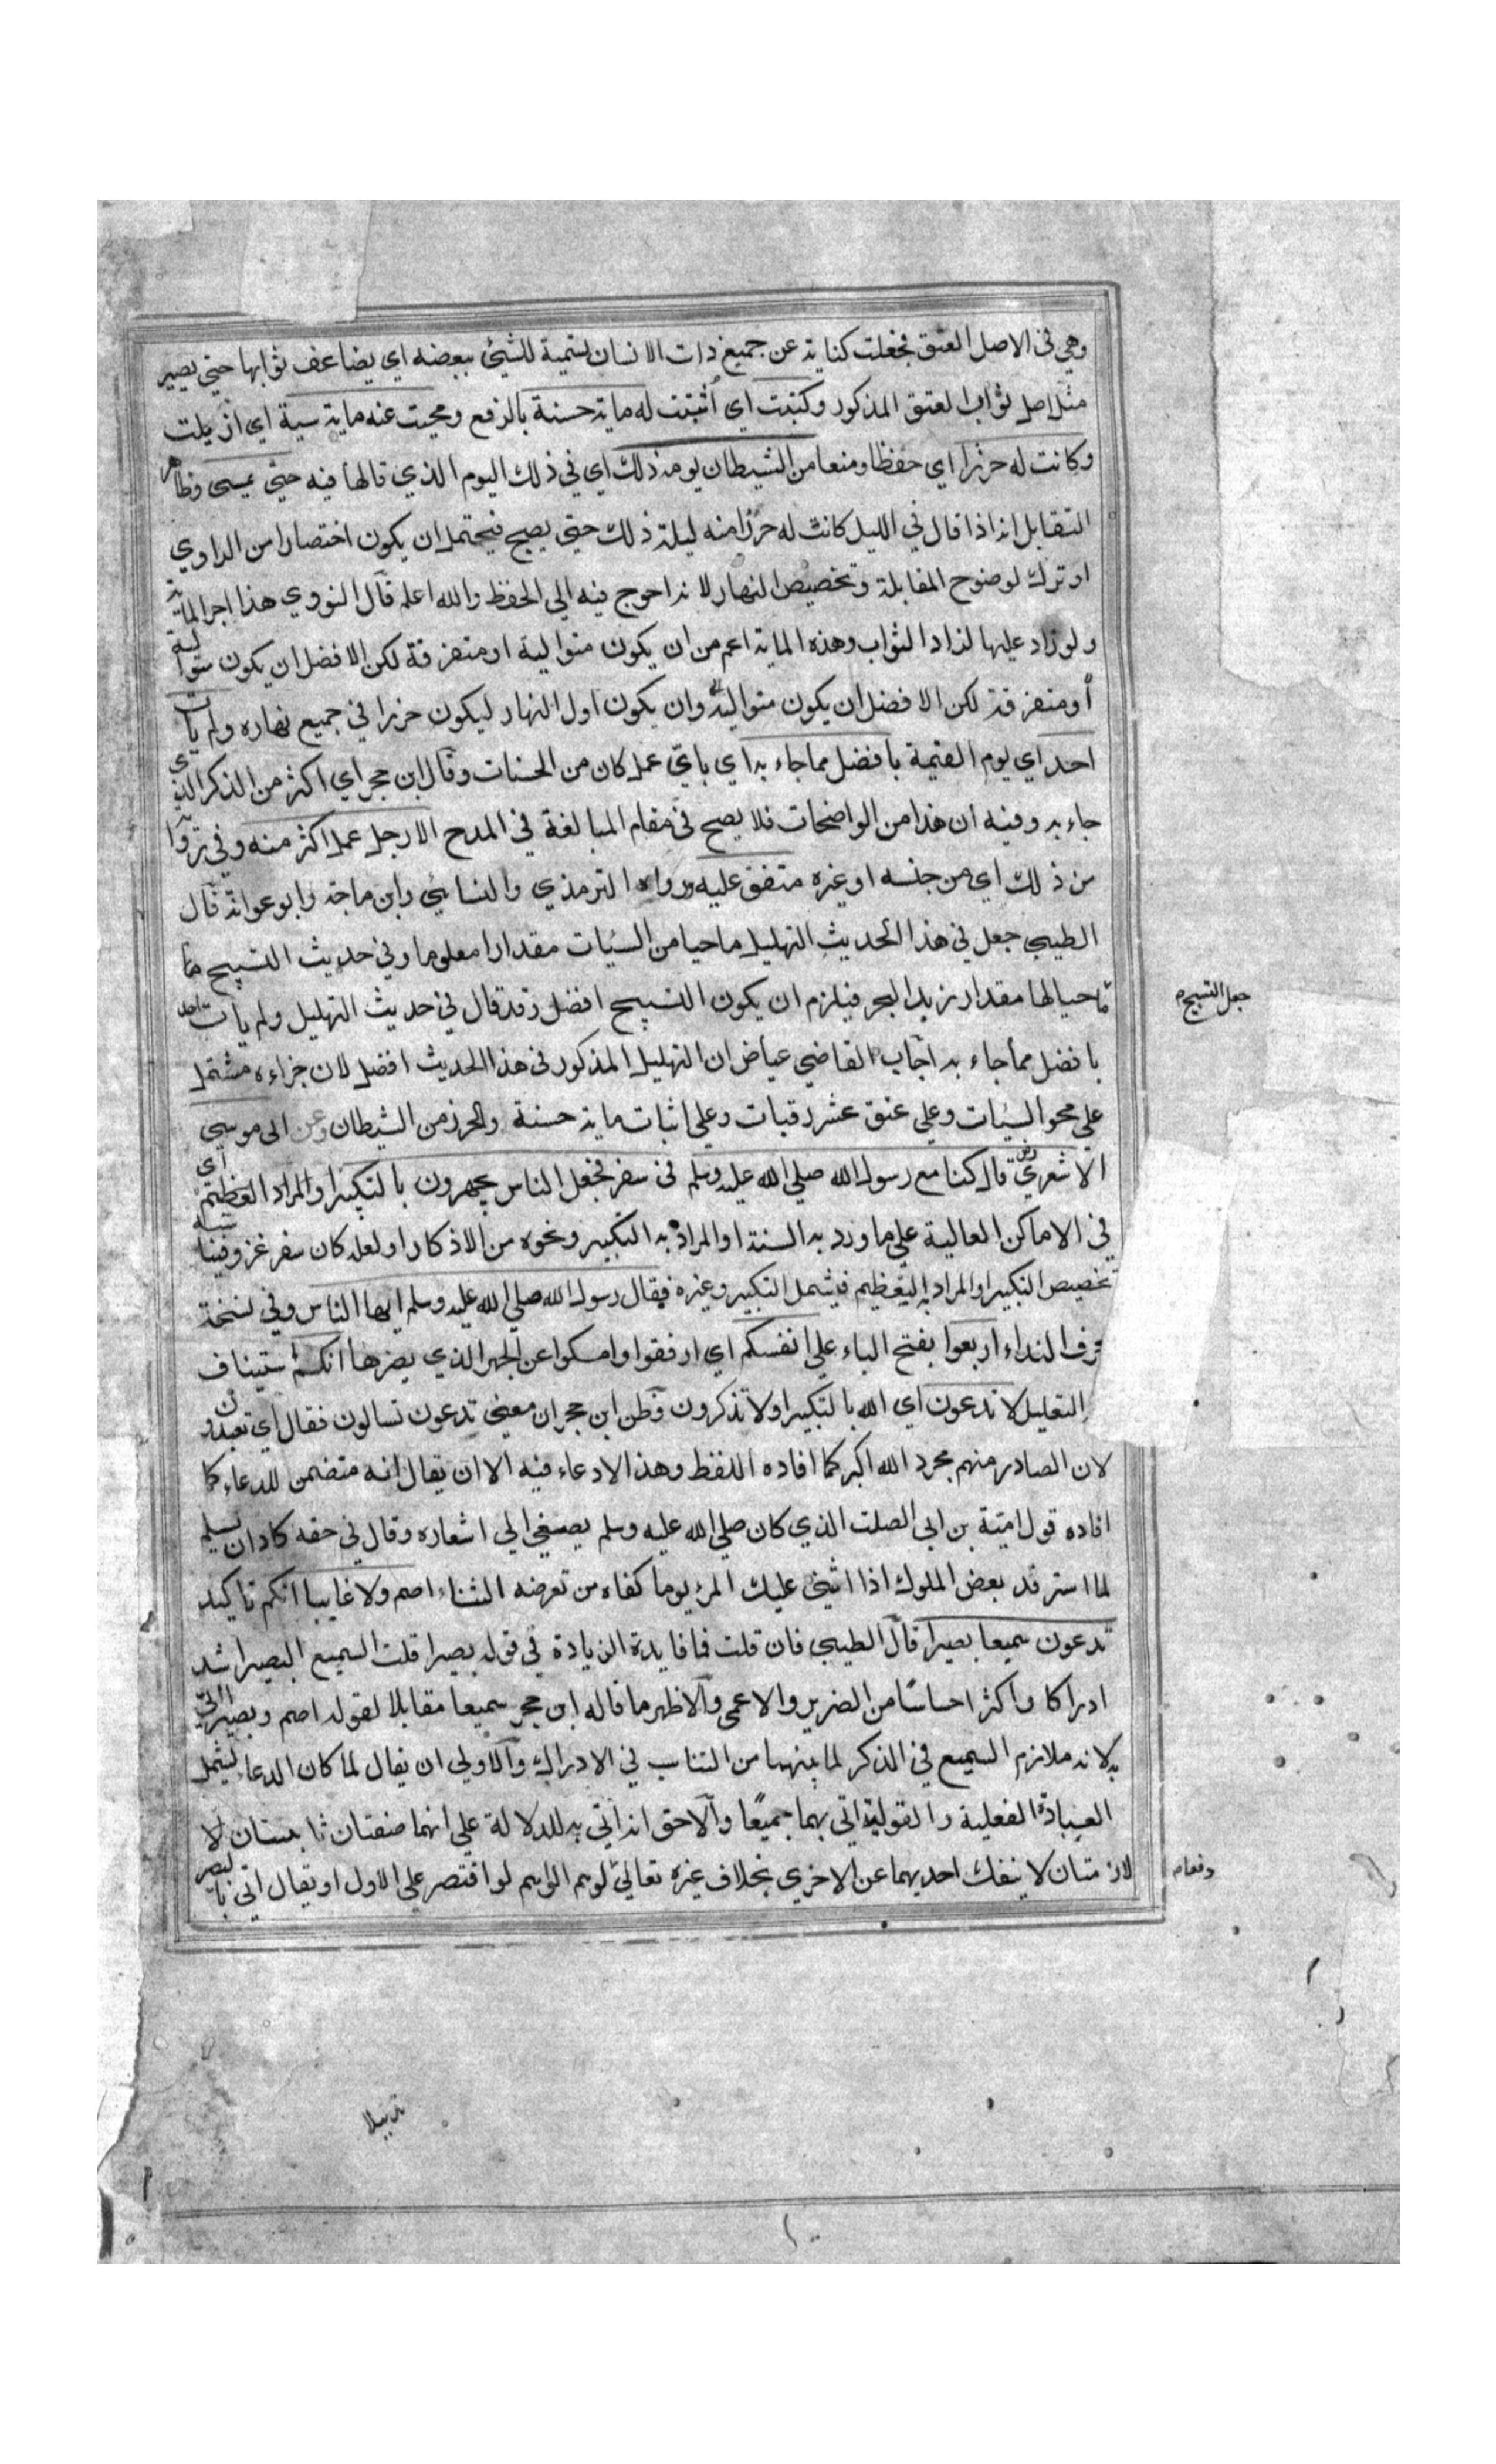 وهي في الاصل العنق فجعلت كناية عن جميع ذات الانسان تسمية للشيئ ببعضه اي يضاعف ثوابها حتي يصير
مثل اصل ثواب العتق المذكور وكتبت اي أثبتت له ماية حسنة بالرفع ومحيت عنه ماية سية اي ازيلت
وكانت له حرزا اي حفظا ومنعا من الشيطان يومه ذلك اي في ذلك اليوم الذي قالها فيه حتي يمسى وظاهر
التقابل انه اذا قال في الليل كانت له حرزا منه ليلة ذلك حتي يصبح فيحتمل ان يكون اختصارا من الراوي
او ترك لوضوح المقابلة وتخصيص النهار لانه احوج فيه الي الحفظ والله اعلم قال النووي هذا اجر الماية
ولو زاد عليها لزاد الثواب وهذه الماية اعم من ان يكون متوالية او متفرقة لكن الافضل ان يكون متوالية
أو متفرقة لكن الافضل ان يكون متوالية وان يكون اول النهار ليكون حرزا في جميع نهاره ولم يأت
احد اي يوم القيمة بافضل مما جاء به اي باي عمل كان من الحسنات وقال ابن حجر اي اكثر من الذكر الذي
جاء به وفيه ان هذا من الواضحات فلا يصح في مقام المبالغة في المدح الا رجل عمل اكثر منه وفي
من ذلك اي من جنسه او غيره متفق عليه ورواه الترمذي والنسائي وابن ماجة وابو عوانة قال
الطيبي جعل في هذا الحديث التهليل ماحيا من السيئات مقدارا معلوما وفي حديث التسبيح
جعل التسبيح
ماحيا لها مقدار زبد البحر فيلزم ان يكون التسبيح افضل وقد قال في حديث التهليل ولم يأت احد
بافضل مما جاء به اجاب القاضي عياض ان التهليل المذكور في هذا الحديث افضل لان جزاءه مشتمل
علي محو السيئات وعلي عتق عشر رقبات وعلي اثبات ماية حسنة والحرز من الشيطان وعن ابي موسي
الاشعري قال كنا مع رسول الله صلي الله عليه وسلم في سفر فجعل الناس يجهرون بالتكبير اي والمراد التعظيم
في الاماكن العالية علي ما ورد به السنة او المراد به التكبير ونحوه من الاذكار او لعله كان سفر غزو فيناسبه
تخصيص التكبير او المراد به التعظيم فيشمل التكبير وغيره فقال رسول الله صلي الله عليه وسلم ايها الناس وفي نسخة
حرف النداء اربعوا بفتح الباء علي انفسكم اي ارفقوا وامسكوا عن الجهر الذي يضرها انكم استيناف
التعليل لا تدعون اي الله بالتكبير او لا تذكرون وظن ابن حجر ان معني تدعون تسالون فقال اي تعبدون
لان الصادر منهم مجرد الله اكبر كما افاده اللفظ وهذا لا دعاء فيه الا ان يقال انه متضمن للدعاء كما
افاده قول امية بن ابي الصلت الذي كان صلي الله عليه وسلم يصغي الي اشعاره وقال في حقه كاد ان يسلم
لما استرفد بعض الملوك اذا اثني عليك المرء يوما كفاه من تعرضه الثناء اصم ولا غايبا انكم تاكيد
تدعون سميعا بصيرا قال الطيبي فان قلت فما فايدة الزيادة في قوله بصيرا قلت السميع البصير اشد
ادراكا واكثر احساسًا من الضرير والاعمي والاظهر ما قاله ابن حجر سميعا مقابلا لقوله اصم وبصيرا اتي
به لانه ملازم السميع في الذكر لما بينهما من التناسب في الادراك والاولي ان يقال لما كان الدعاء يشمل
العبادة الفعلية والقولية اتي بهما جميعًا والاحق انه اتي به للدلالة علي انهما صفتان ثابتتان
لازمتان لا ينفك احديهما عن الاخري بخلاف غيره تعالي لوهم الواهم لو اقتصر علي الاول او يقال اتي بالبصير
دفعا